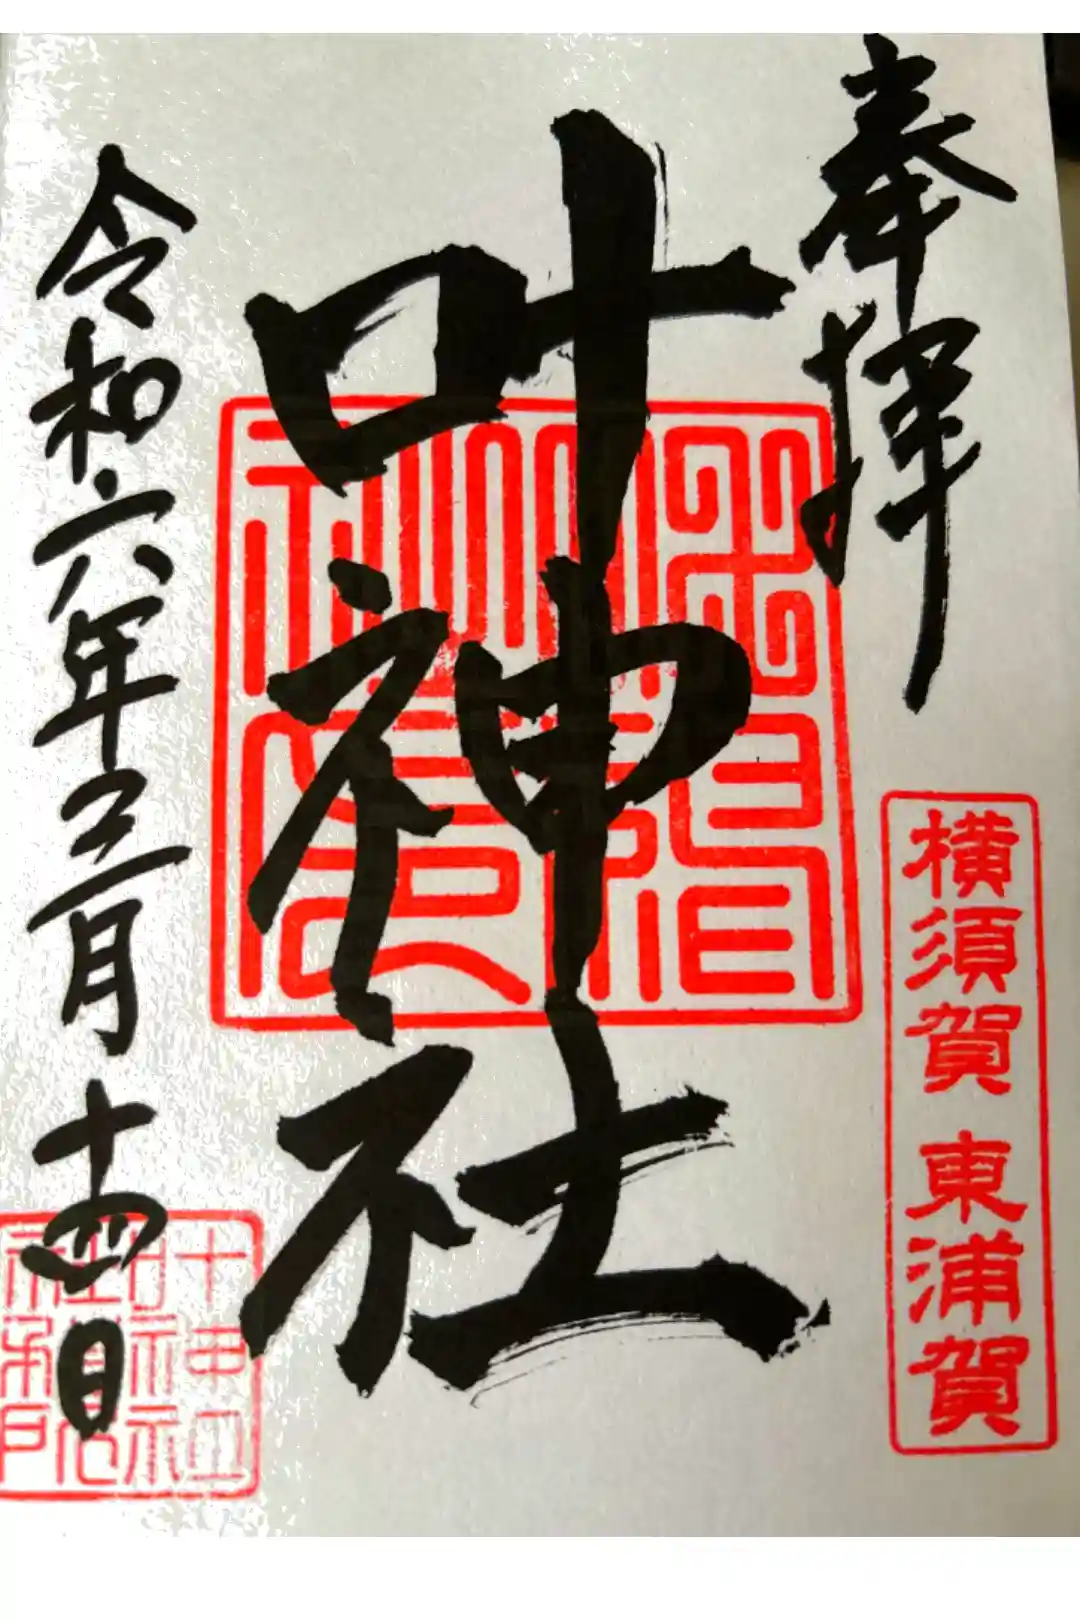 奉拝
横須賀 東浦賀
叶神社
令和六年三月十四日